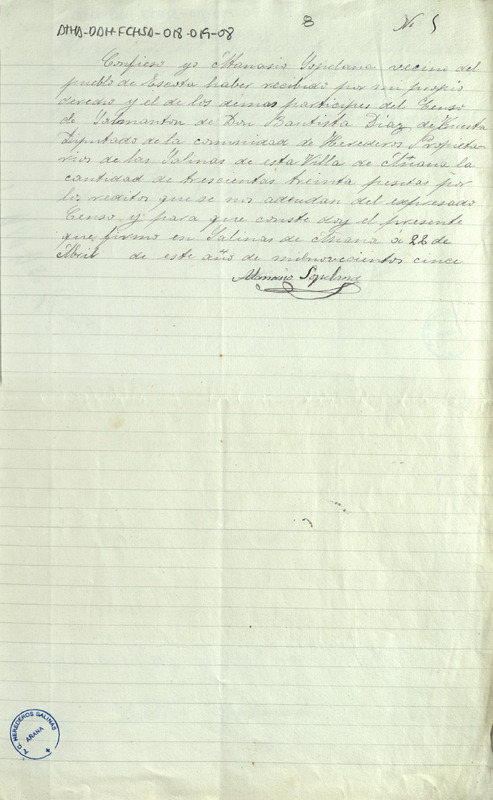 ATHA-DAH-FCHSA-018-019-08
8
Nº 5
Confieso yo Atanasio Sopelana vecino del
pueblo de Escota haber recibido por mi propio
derecho y el de los demas participes del Censo
de Don Bautista Diaz de Huesta
Diputado de la comunidad de Herederos Propieta-
rios de las Salinas de esta Villa de Añana la
cantidad de trescientas treinta pesetas por
los reditos que se nos adeudan del expresado
Censo y para que conste doy el presente
que firmo en Salinas de Añana á 22 de
Abril de este año de milnovecientos cinco
Atanasio Sopelana
A. C. HEREDEROS SALINAS
AÑANA